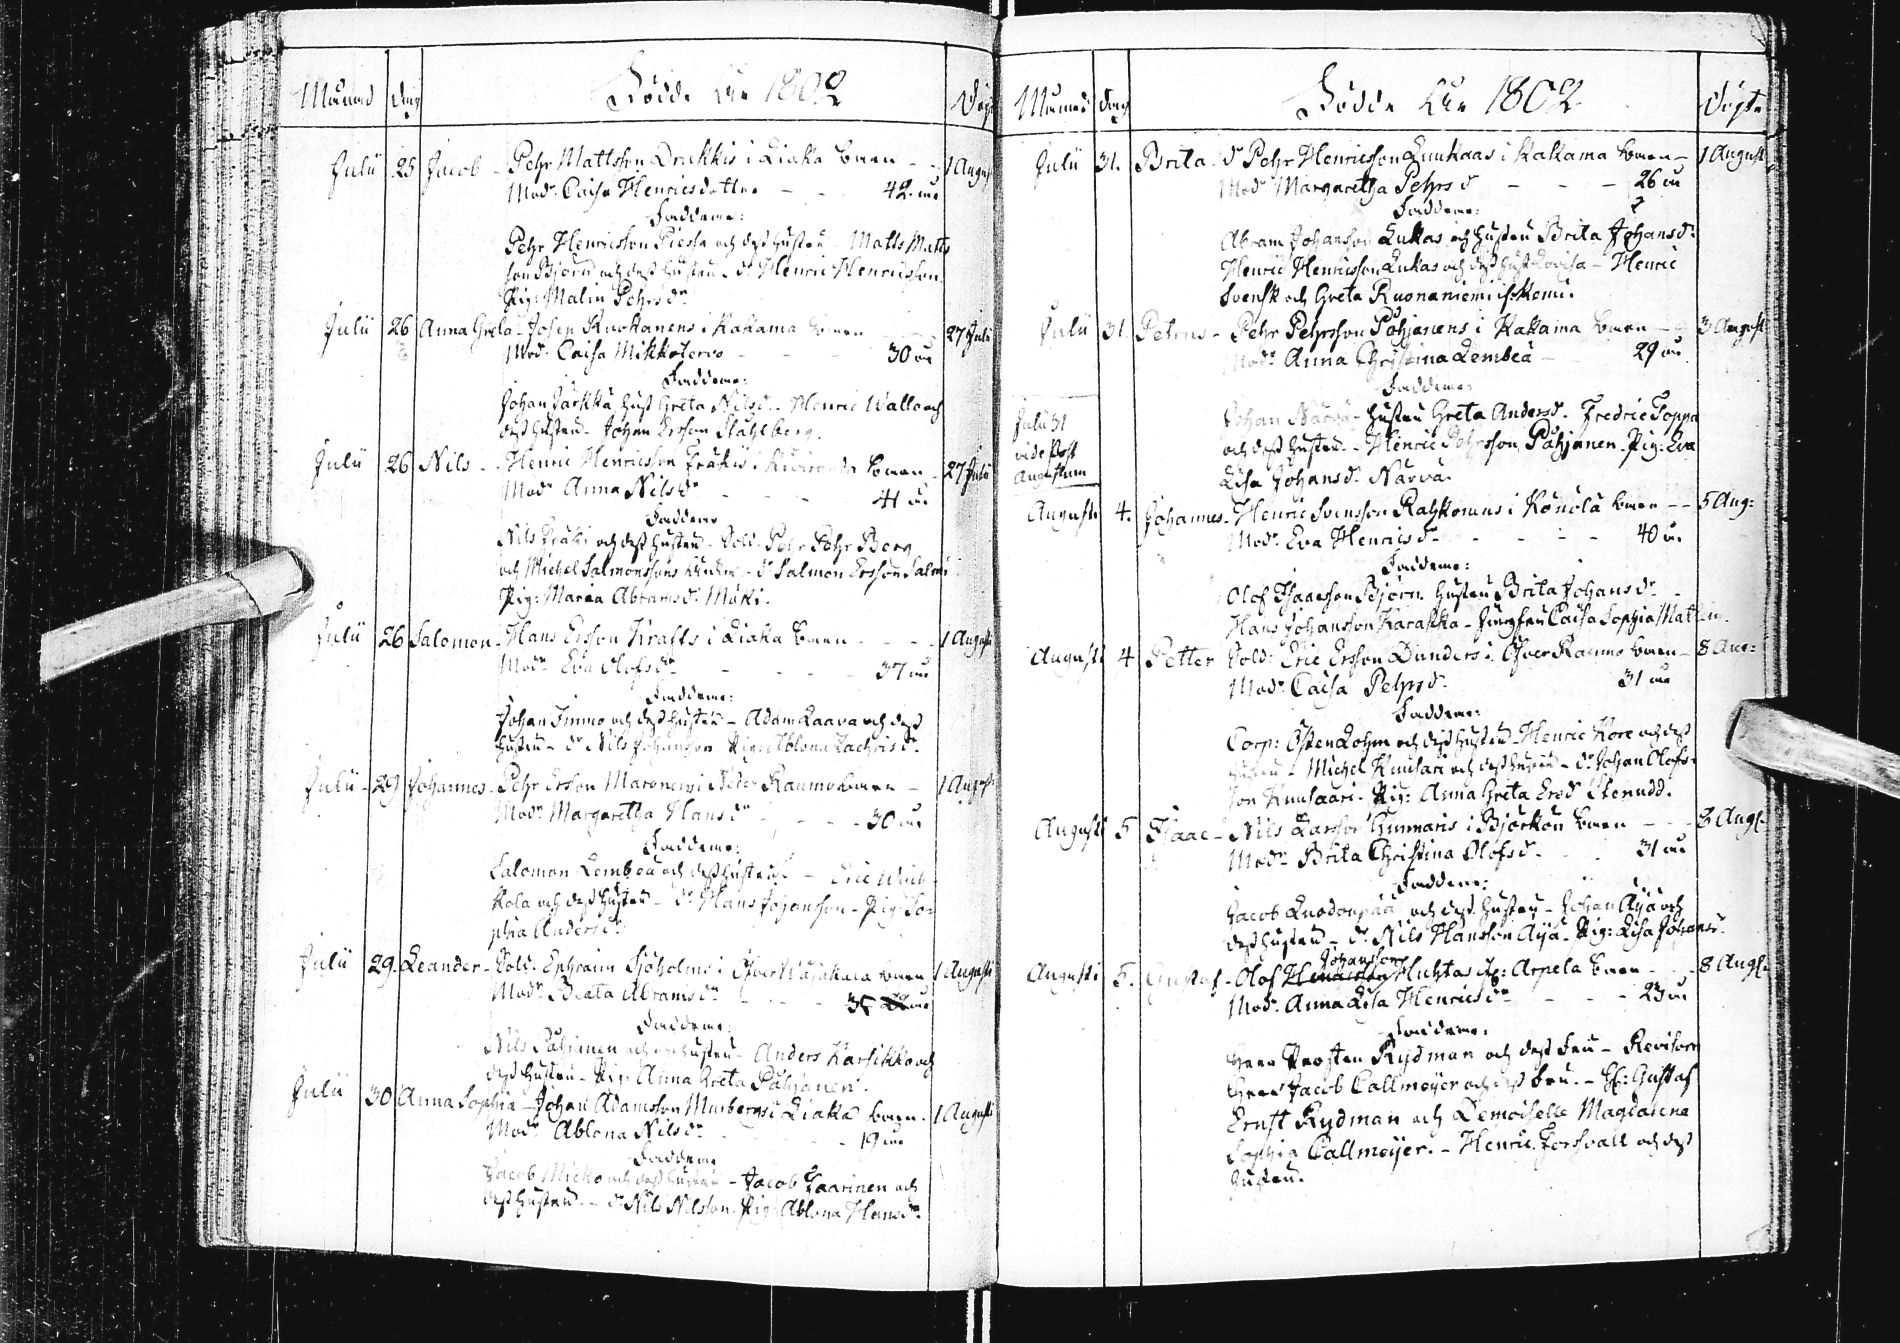 Månad dag Födde År 1802 Döpt
Julii 25 Jacob - Pehr Mattsson Drukkis i Liaka barn - - 1 August
Modr Caisa Henricsdotter - - 42 år
Faddrar:
Pehr Henricsson och dess hustru Matts Matts
son Björn och dess hustru. dr Henric Henricsson
Pig: Malin Pehrs dr
Julii 26 Anna Greta - Josep Ruokanens i Kakama barn 27 Julii
Modr Caisa Mikkotervo - - 30 år
Faddrar:
Johan hust Greta Nils d. - Henric Wallo och
dess hustru - Johan Ersson Ståhlberg.
Julii 26 Nils - Henric Henricsson i barn - 27 Julii
Modr Anna Nils dr - - - 41 år
Faddrar
Nils och dess hustru - Sold: Pehr Pehr Berg
och Michel Salmonssons hustru - dr Salmon Ersson Salmi
Pig: Marea Abrams dr Mäki.
Julii 26 Salomon - Hans Ersson Krafts i Liaka barn - - - 1 Augusti
Modr Eva Olofs dr - - - 37 år
Faddrar:
Johan Simmo och dess hustru - Adam Laava och dess
hustru - dr Nils Johansson Pig: Ablona Zachris dr
Julii - 29 Johannes - Pehr Ersson i Neder Raumo barn - 1 August
Modr Margaretha Hans dr - - - 30 år
Faddrar:
Salomon Lembeä och dess hustru - Eric
kola och dess hustru - dr Hans Johansson - Pig: So-
phia Anders dr
Julii 29 Leander - Sold: Ephraim Sjöholms i Öfver barn 1 Augusti
Modr Beata Abrams dr - - - 35 år
Faddrar:
Nils Pähjänen och dess hustru - Anders Karsikko och
dess hustru - Pig: Anna Greta Pähjänen.
Julii 30 Anna Sophia - Johan Adamsson Murbergs i Liaka barn - 1 Augusti
Modr Ablona Nils dr - - - 19 år
Faddrar
Jacob Micko och dess hustru - Jacob Saarinen och
dess hustru - dr Nils Nilsson. Pig: Ablona Hans dr
Månad dag Födde År 1802 Döpte
Julii 31. Brita - dr Pehr Henricsson Luukaas i Kakama barn - 1 August
Modr Margaretha Pehrs d - - - 26 år
Faddrar:
Abram Johansson Lukas och hustru Brita Johans d:
Henric Henricsson Lukas och dess hust Lovisa - Henric
Svensk och Greta Ruonaniemi
Julii 31 Petrus - Pehr Pehrsson Pähjänens i Kakama barn - 3 August
Modr Anna Christina Lembeä - 29 år
Faddrar:
Johan Närvä - hustru Greta Anders d. Fredric Poppa
och dess hustru - Henric Pehrsson Pähjänen. Pig: Eva
Lisa Johans d. Närvä.
Julii 31
vide post
Augustum
Augusti 4. Johannes - Henric Svensson Ratzkonens i Könölä barn - - 5 Aug:
Modr Eva Henrics d - - - - 40 år
Faddrar:
Olof Isaacsson Björn hustru Brita Johans dr
Hans Johansson Karaskka - Jungfru Caisa Sophia
Augusti 4 Petter Sold: Eric Ersson Dunders i Öfver Raumo barn - 8 Aug:
Modr Caisa Pehrs d. 31 år
Faddrar:
Corp: Östen Lohm och dess hustru - Henric Kore och dess
hustru - Michel Kuusari och dess hustru - dr Johan Olofs-
son Kuusaari - Pig: Anna Greta Ers d Stenudd.
Augusti 5 Isaac - Nils Larsson Gunnaris i Björkön barn - - - 8 Aug:
Modr Brita Christina Olofs d - 31 år
Faddrar:
Jacob och dess hustru - Johan Äyä och
dess hustru - dr Nils Hansson Äyä - Pig: Lisa Johans d.
Johansson
Augusti 5. Gustaf - Olof Henricsson Huhtas Arpela barn - - 8 Aug:
Modr Anna Lisa Henrics dr - - - 23 år
Faddrar:
Herr Prosten Rydman och dess fru - Revisorn
Herr Jacob Callmeijer och dess fru. - Gustaf
Ernst Rydman och Demoiselle Magdalena
Sophia Callmeijer. - Henric Forsvall och dess
hustru.